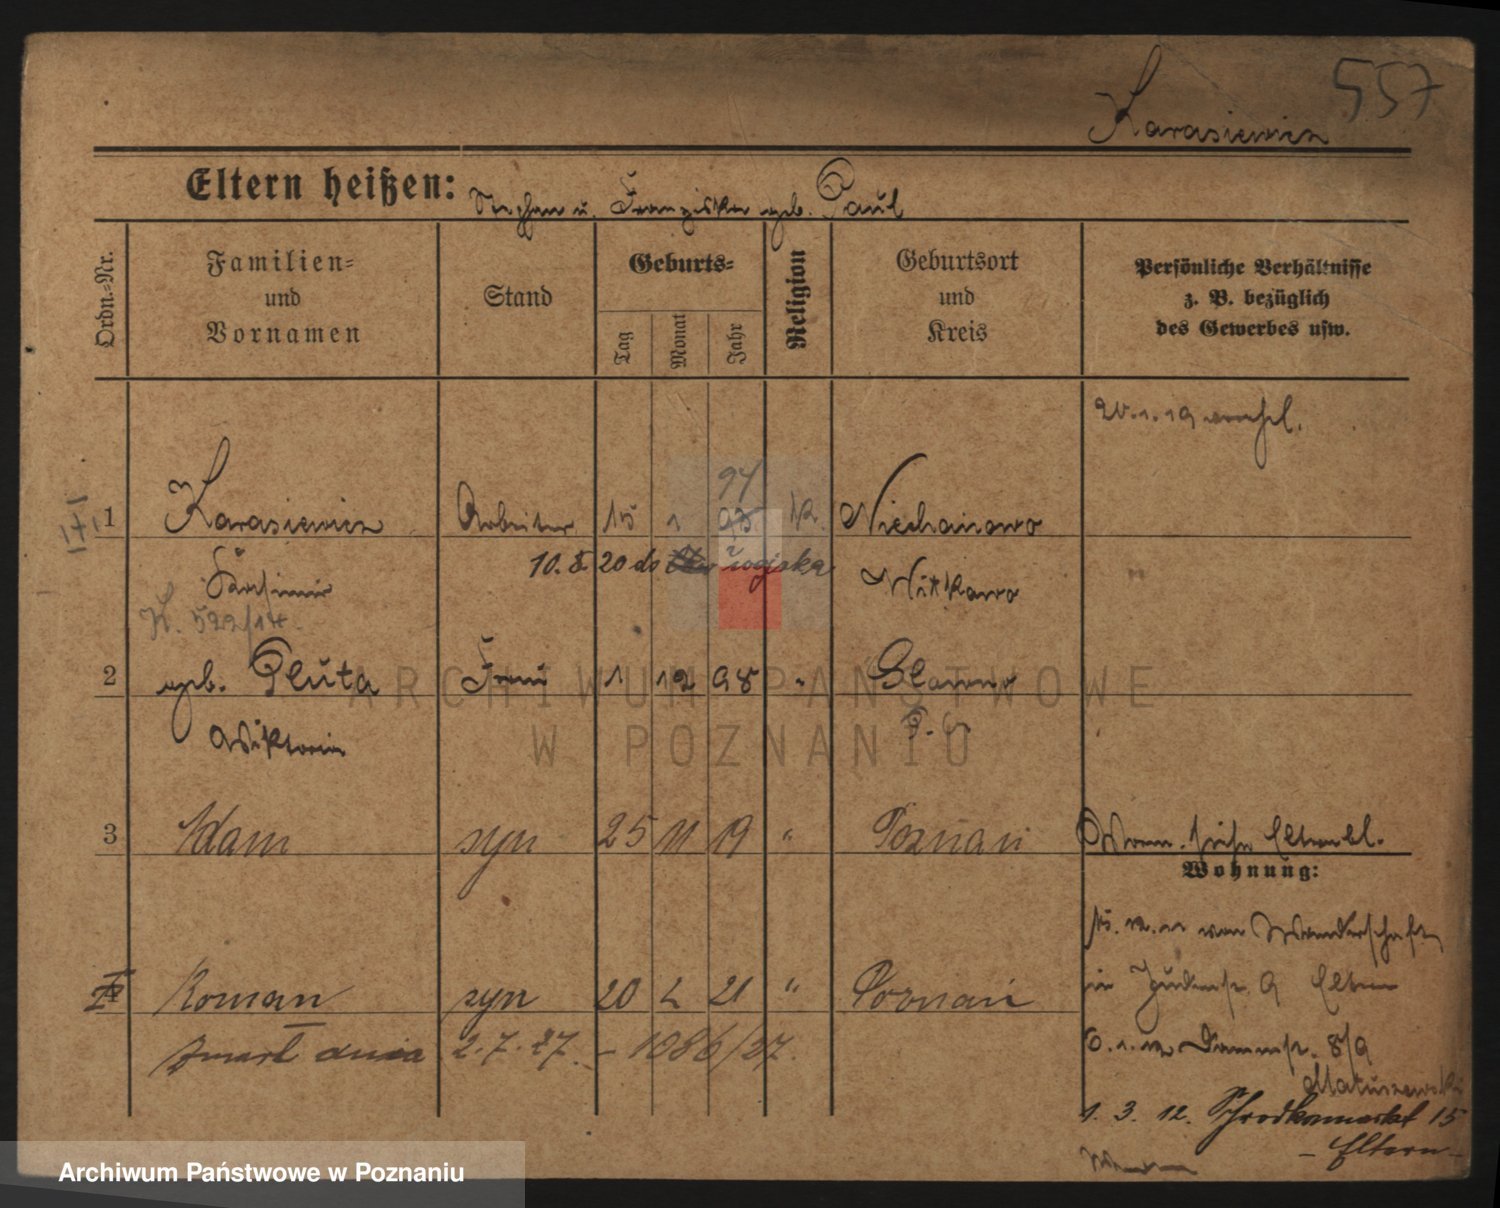 557
Karasiewicz
Eltern heißen: Stephan u. Franziska geb. Paul
Ordn.-Nr.
Familien-
und
Vornamen
Stand
Geburts-
Tag
Monat
Jahr
Religion
Geburtsort
und
Kreis
Persönliche Verhältnisse
z. B. bezüglich
des Gewerbes usw.
20.1.19
94
1 Karasiewicz Arbeiter 15 1 93 k. Niechanowo
10.8 20 do
Kasimir Witkowo
K. 522/14.
2 geb. Pluta Frau 1 12 98 " Slawno
Wiktoria
3 Adam syn 25 11 19 " Poznań
Wohnung:
4 Roman syn 20 2 21 " Poznań
zmarł dnia 2.7.27. – 1086/27.
in Judenstr. 9 Eltern
6.1.12 Dammstr. 8/9
Matuszewski
1. 3. 12. Schrodkamarkt 15
– Eltern –
ARCHIWUM PAŃSTWOWE
W POZNANIU
Archiwum Państwowe w Poznaniu